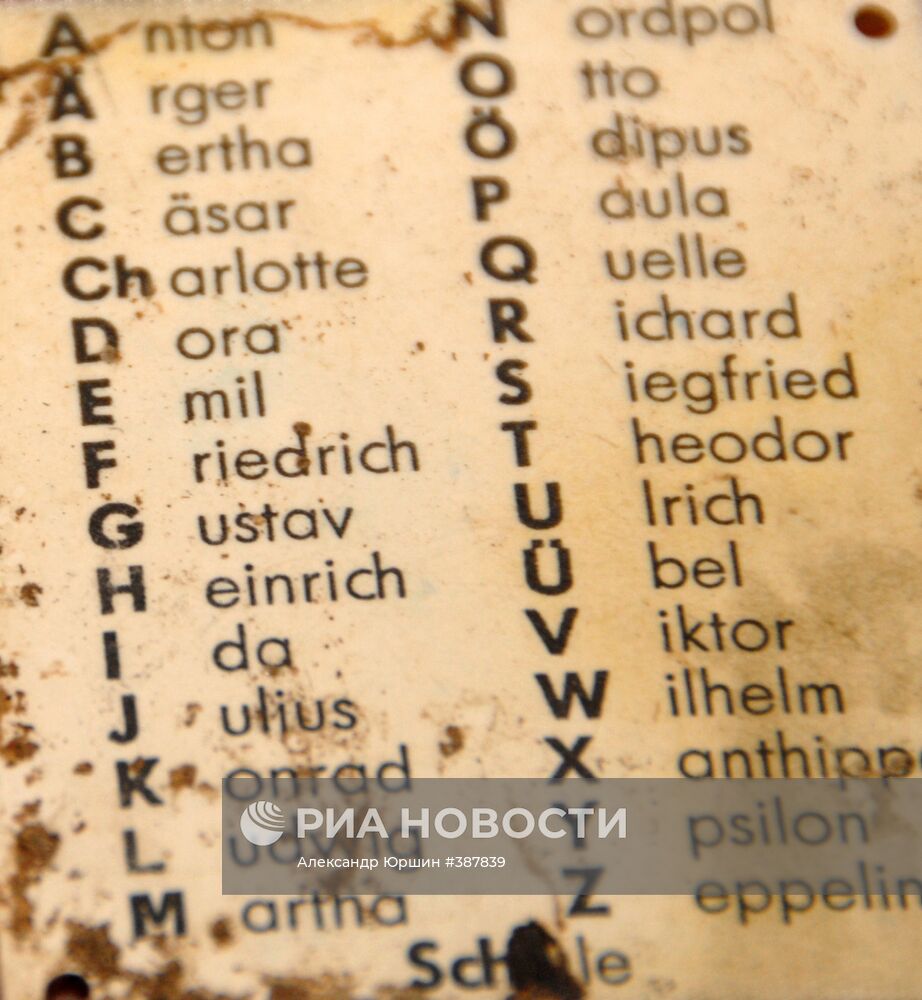 A nton
Ä rger
B ertha
C äsar
Ch arlotte
D ora
E mil
F riedrich
G ustav
H einrich
I da
J ulius
K onrad
L udwig
M artha
N ordpol
O tto
Ö dipus
P aula
Q uelle
R ichard
S iegfried
T heodor
U lrich
Ü bel
V iktor
W ilhelm
X anthipp
Y psilon
Z eppelin
РИА НОВОСТИ
Александр Юршин #387839